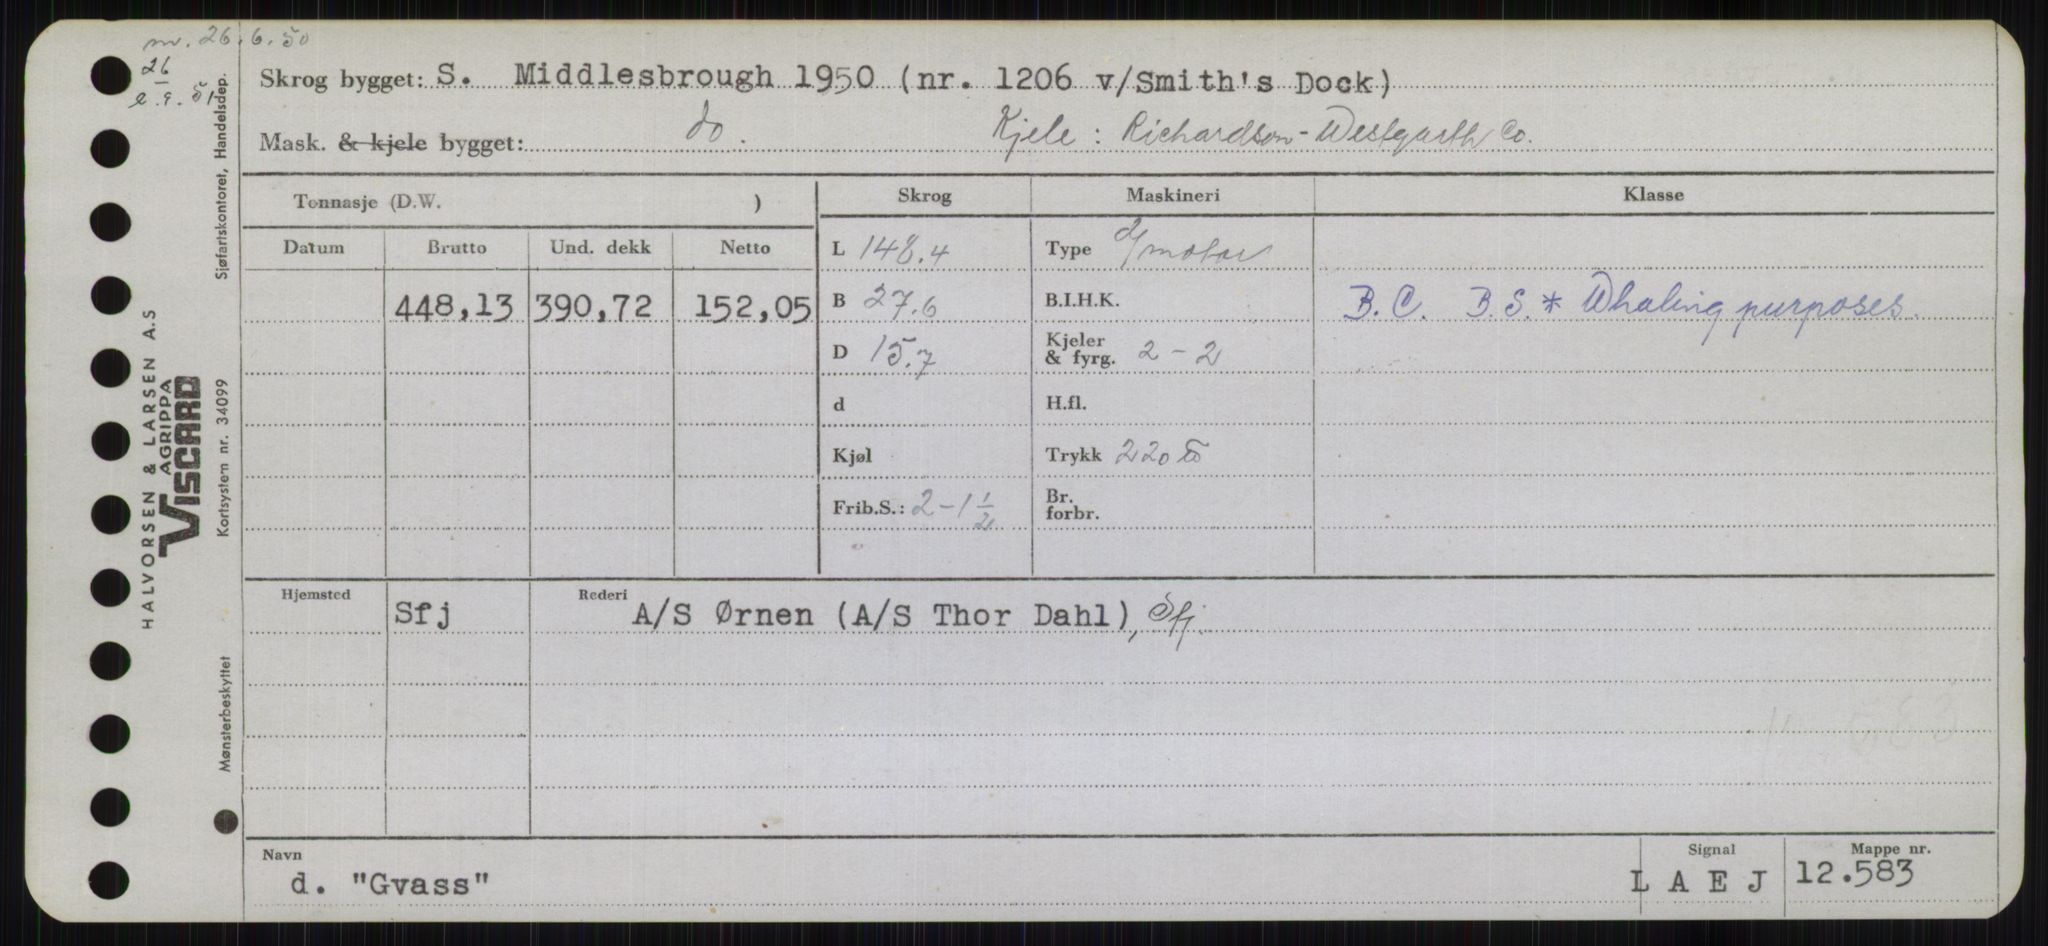 nr. 26.6.50
26
e.9.51
Skrog bygget: S. Middlesbrough 1950 (nr. 1206 v/Smith's Dock)
Mask. & kjele bygget: do. Kjele: Richardson-Westgarth Co.
Tonnasje (D.W. ) Skrog Maskineri Klasse
Datum Brutto Und. dekk Netto L 148.4 Type d/motor
448,13 390,72 152,05 B 27.6 B.I.H.K. B.C. B.S.* Whaling purposes.
D 15.7 Kjeler & fyrg. 2-2
d H.fl.
Kjøl Trykk 220
Frib.S.: 2-1 1/2 Br. forbr.
Hjemsted Sfj Rederi A/S Ørnen (A/S Thor Dahl), Sfj.
583
Navn Signal Mappe nr.
d. "Gvass" L A E J 12.583
HALVORSEN & LARSEN A.S
AGRIPPA
VISCARD
Mønsterbeskyttet Kortsystem nr. 34099 Sjøfartskontoret, Handelsdep.